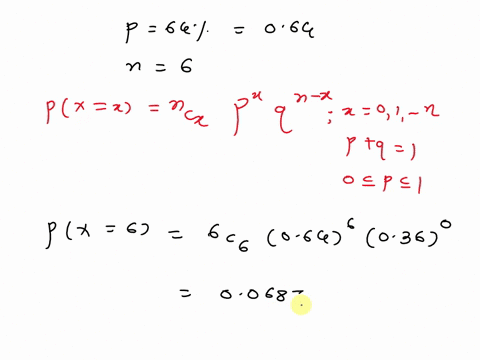 p = 64% = 0.64
n = 6
P(X=x) = nCx p^x q^n-x ; x = 0, 1, - n
p + q = 1
0 ≤ p ≤ 1
P(X = 6) = 6C6 (0.64)^6 (0.36)^0
= 0.0687